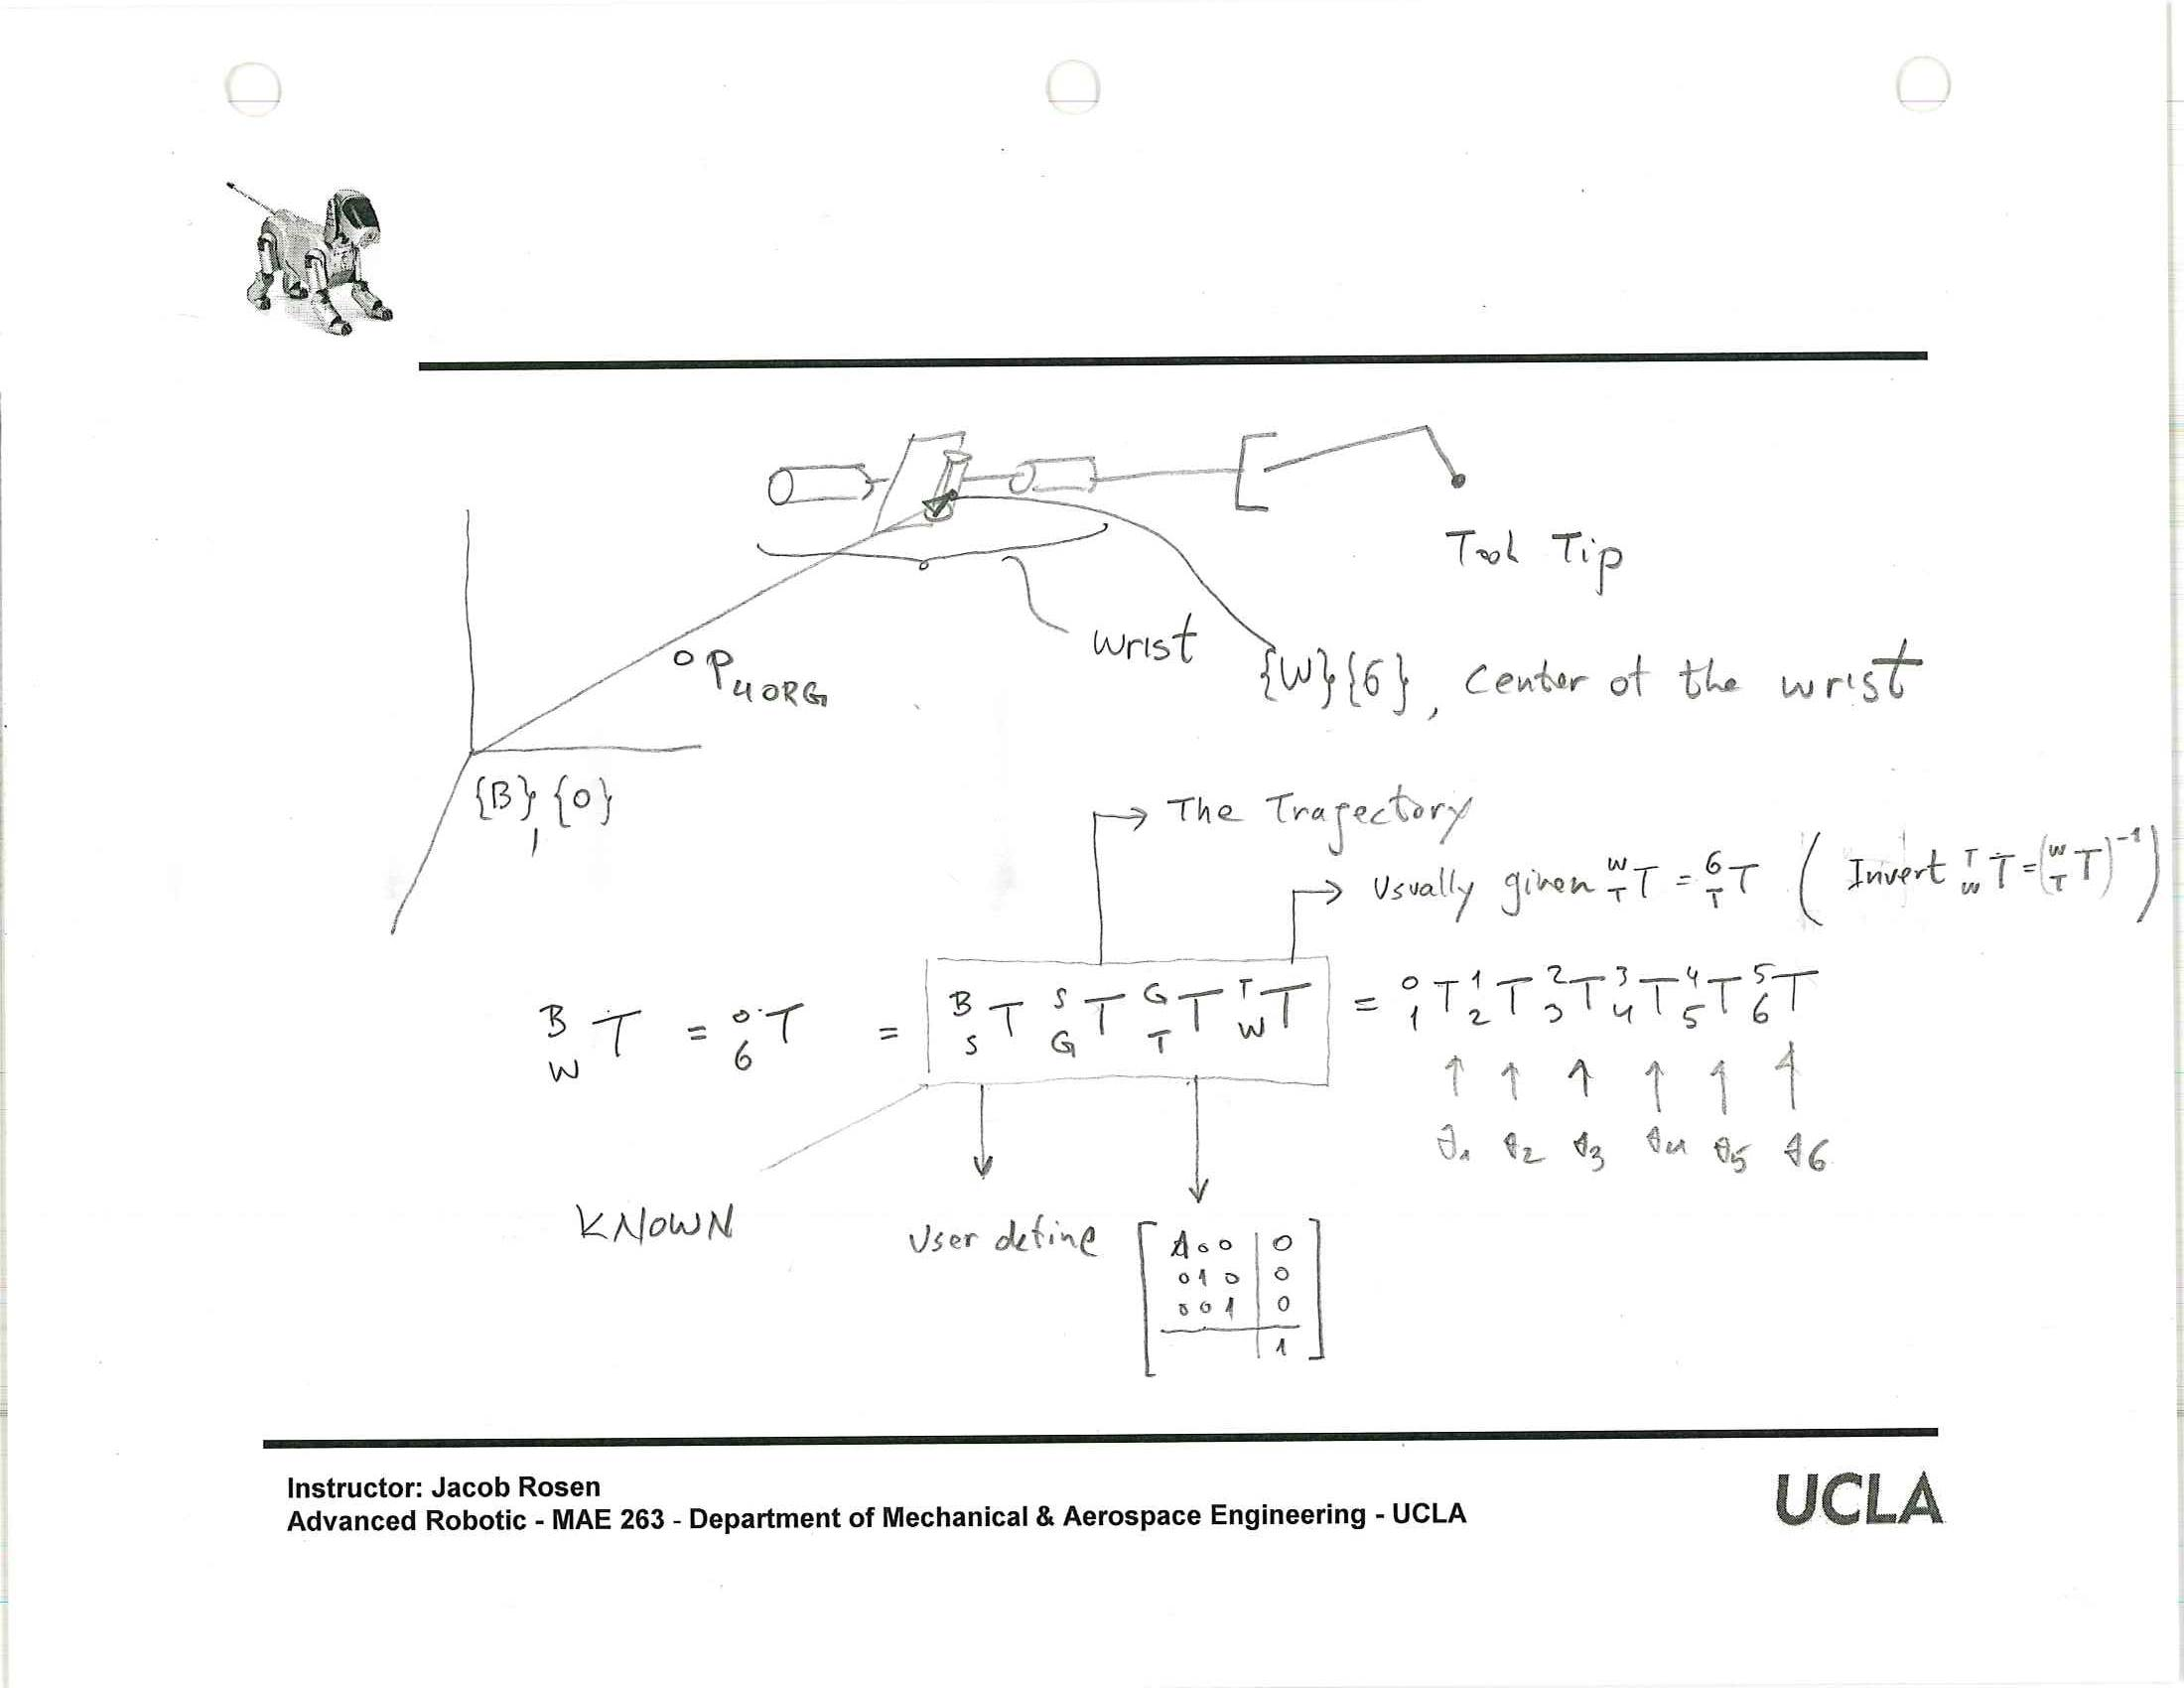 Tool Tip
wrist
⁰P₄ORG
{W}{6}, center of the wrist
{B}, {0}
The Tragectory
Usually given ᵂ_T T = ⁶_T T ( Invert ᵀ_W T = (ᵂ_T T)⁻¹ )
ᴮ_W T = ⁰_6 T = ᴮ_S T ˢ_G T ᴳ_T T ᵀ_W T = ⁰_1 T ¹_2 T ²_3 T ³_4 T ⁴_5 T ⁵_6 T
↑ ↑ ↑ ↑ ↑ ↑
θ1 θ2 θ3 θ4 θ5 θ6
KNOWN
User define
1 0 0 | 0
0 1 0 | 0
0 0 1 | 0
1
Instructor: Jacob Rosen
Advanced Robotic - MAE 263 - Department of Mechanical & Aerospace Engineering - UCLA
UCLA